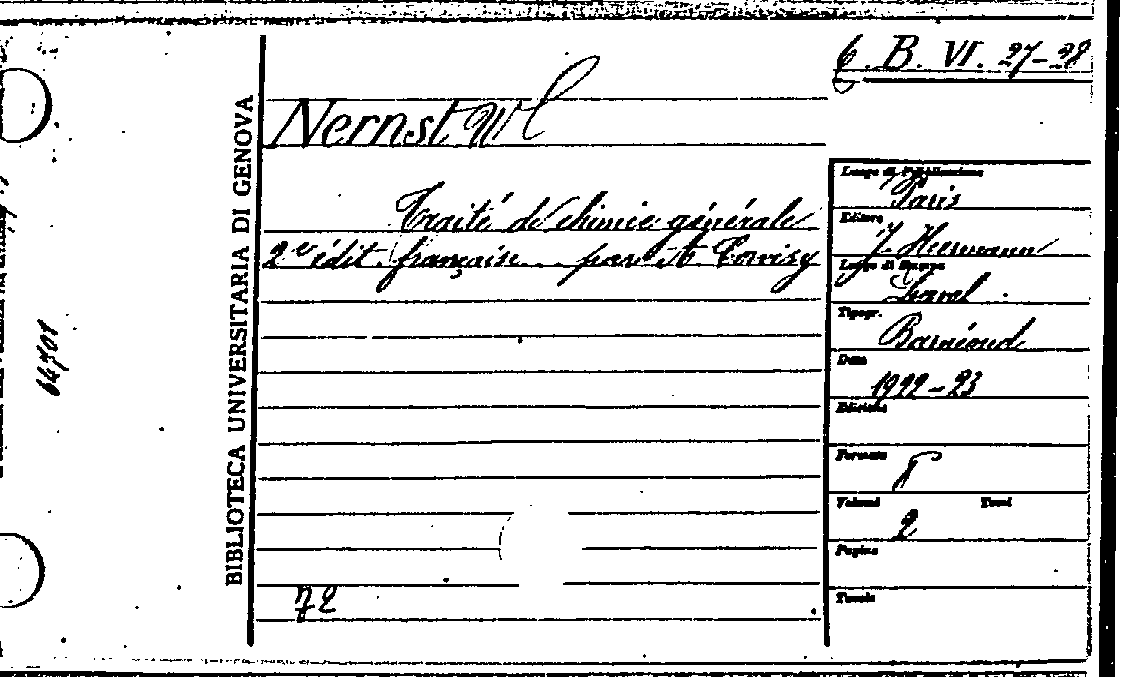 6. B. VI. 27-28
BIBLIOTECA UNIVERSITARIA DI GENOVA
Nernst W
Traité de chimie générale
2e édit. française... par A. Corvisy
Luogo di Pubblicazione
Paris
Editore
J. Hermann
Luogo di Stampa
Laval
Tipogr.
Barnéoud
Data
1922-23
Edizione
Formato
8
Volumi Tomi
2
Pagine
Tavole
72